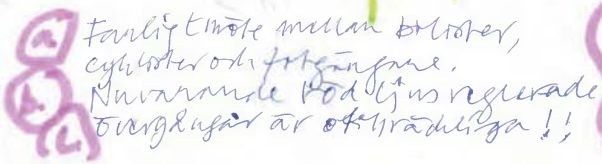 a. Farligt möte mellan bilister,
cyklister och fotgängare.
b. Nuvarande rödljusreglerade
b. övergångar är otillräckliga !!